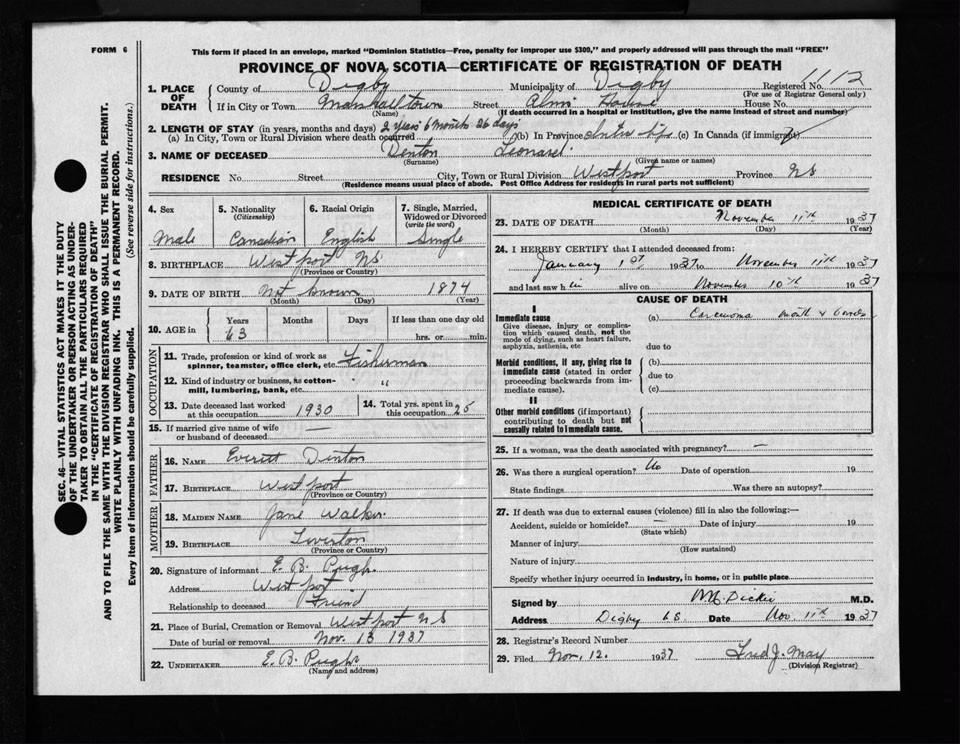 FORM 6
This form if placed in an envelope, marked "Dominion Statistics—Free, penalty for improper use $300," and properly addressed will pass through the mail "FREE"
PROVINCE OF NOVA SCOTIA—CERTIFICATE OF REGISTRATION OF DEATH
1. PLACE OF DEATH
County of Digby Municipality of Digby Registered No. 1112
(For use of Registrar General only)
If in City or Town Marshalltown Street Alms House House No.
(Name) (If death occurred in a hospital or institution, give the name instead of street and number)
2. LENGTH OF STAY (in years, months and days) 2 years 6 months 26 days
(a) In City, Town or Rural Division where death occurred (b) In Province entire life (c) In Canada (if immigrant)
3. NAME OF DECEASED Denton Leonard
(Surname) (Given name or names)
RESIDENCE No. Street City, Town or Rural Division Westport Province NS
(Residence means usual place of abode. Post Office Address for residents in rural parts not sufficient)
4. Sex Male
5. Nationality (Citizenship) Canadian
6. Racial Origin English
7. Single, Married, Widowed or Divorced (write the word) Single
8. BIRTHPLACE Westport NS
(Province or Country)
9. DATE OF BIRTH Not known 1874
(Month) (Day) (Year)
10. AGE in Years Months Days If less than one day old
63 hrs. or min.
OCCUPATION
11. Trade, profession or kind of work as spinner, teamster, office clerk, etc. Fisherman
12. Kind of industry or business, as cotton-mill, lumbering, bank, etc. " "
13. Date deceased last worked at this occupation 1930
14. Total yrs. spent in this occupation 25
15. If married give name of wife or husband of deceased —
FATHER
16. NAME Everitt Denton
17. BIRTHPLACE Westport
(Province or Country)
MOTHER
18. MAIDEN NAME Jane Walker
19. BIRTHPLACE Tiverton
(Province or Country)
20. Signature of informant E. B. Pugh
Address Westport
Relationship to deceased Friend
21. Place of Burial, Cremation or Removal Westport NS
Date of burial or removal Nov. 13 1937
22. UNDERTAKER E. B. Pugh
(Name and address)
MEDICAL CERTIFICATE OF DEATH
23. DATE OF DEATH November 11th 1937
(Month) (Day) (Year)
24. I HEREBY CERTIFY that I attended deceased from:
January 1st 1937 to November 11th 1937
and last saw him alive on November 10th 1937
CAUSE OF DEATH
I
Immediate cause (a) Carcinoma mouth &
Give disease, injury or complication which caused death, not the mode of dying, such as heart failure, asphyxia, asthenia, etc.
due to
Morbid conditions, if any, giving rise to immediate cause (stated in order proceeding backwards from immediate cause).
(b)
due to
(c)
II
Other morbid conditions (if important) contributing to death but not causally related to immediate cause.
25. If a woman, was the death associated with pregnancy? —
26. Was there a surgical operation? No Date of operation 19
State findings Was there an autopsy?
27. If death was due to external causes (violence) fill in also the following:—
Accident, suicide or homicide? — Date of injury 19
(State which)
Manner of injury
(How sustained)
Nature of injury
Specify whether injury occurred in industry, in home, or in public place
Signed by M.D.
Address Digby NS Date Nov. 11th 1937
28. Registrar's Record Number
29. Filed Nov. 12. 1937 Fred J. May
(Division Registrar)
SEC. 46—VITAL STATISTICS ACT MAKES IT THE DUTY
OF THE UNDERTAKER OR PERSON ACTING AS UNDER-
TAKER TO OBTAIN ALL THE PARTICULARS REQUIRED
IN THE "CERTIFICATE OF REGISTRATION OF DEATH"
AND TO FILE THE SAME WITH THE DIVISION REGISTRAR WHO SHALL ISSUE THE BURIAL PERMIT.
WRITE PLAINLY WITH UNFADING INK. THIS IS A PERMANENT RECORD.
Every item of information should be carefully supplied. (See reverse side for instructions.)